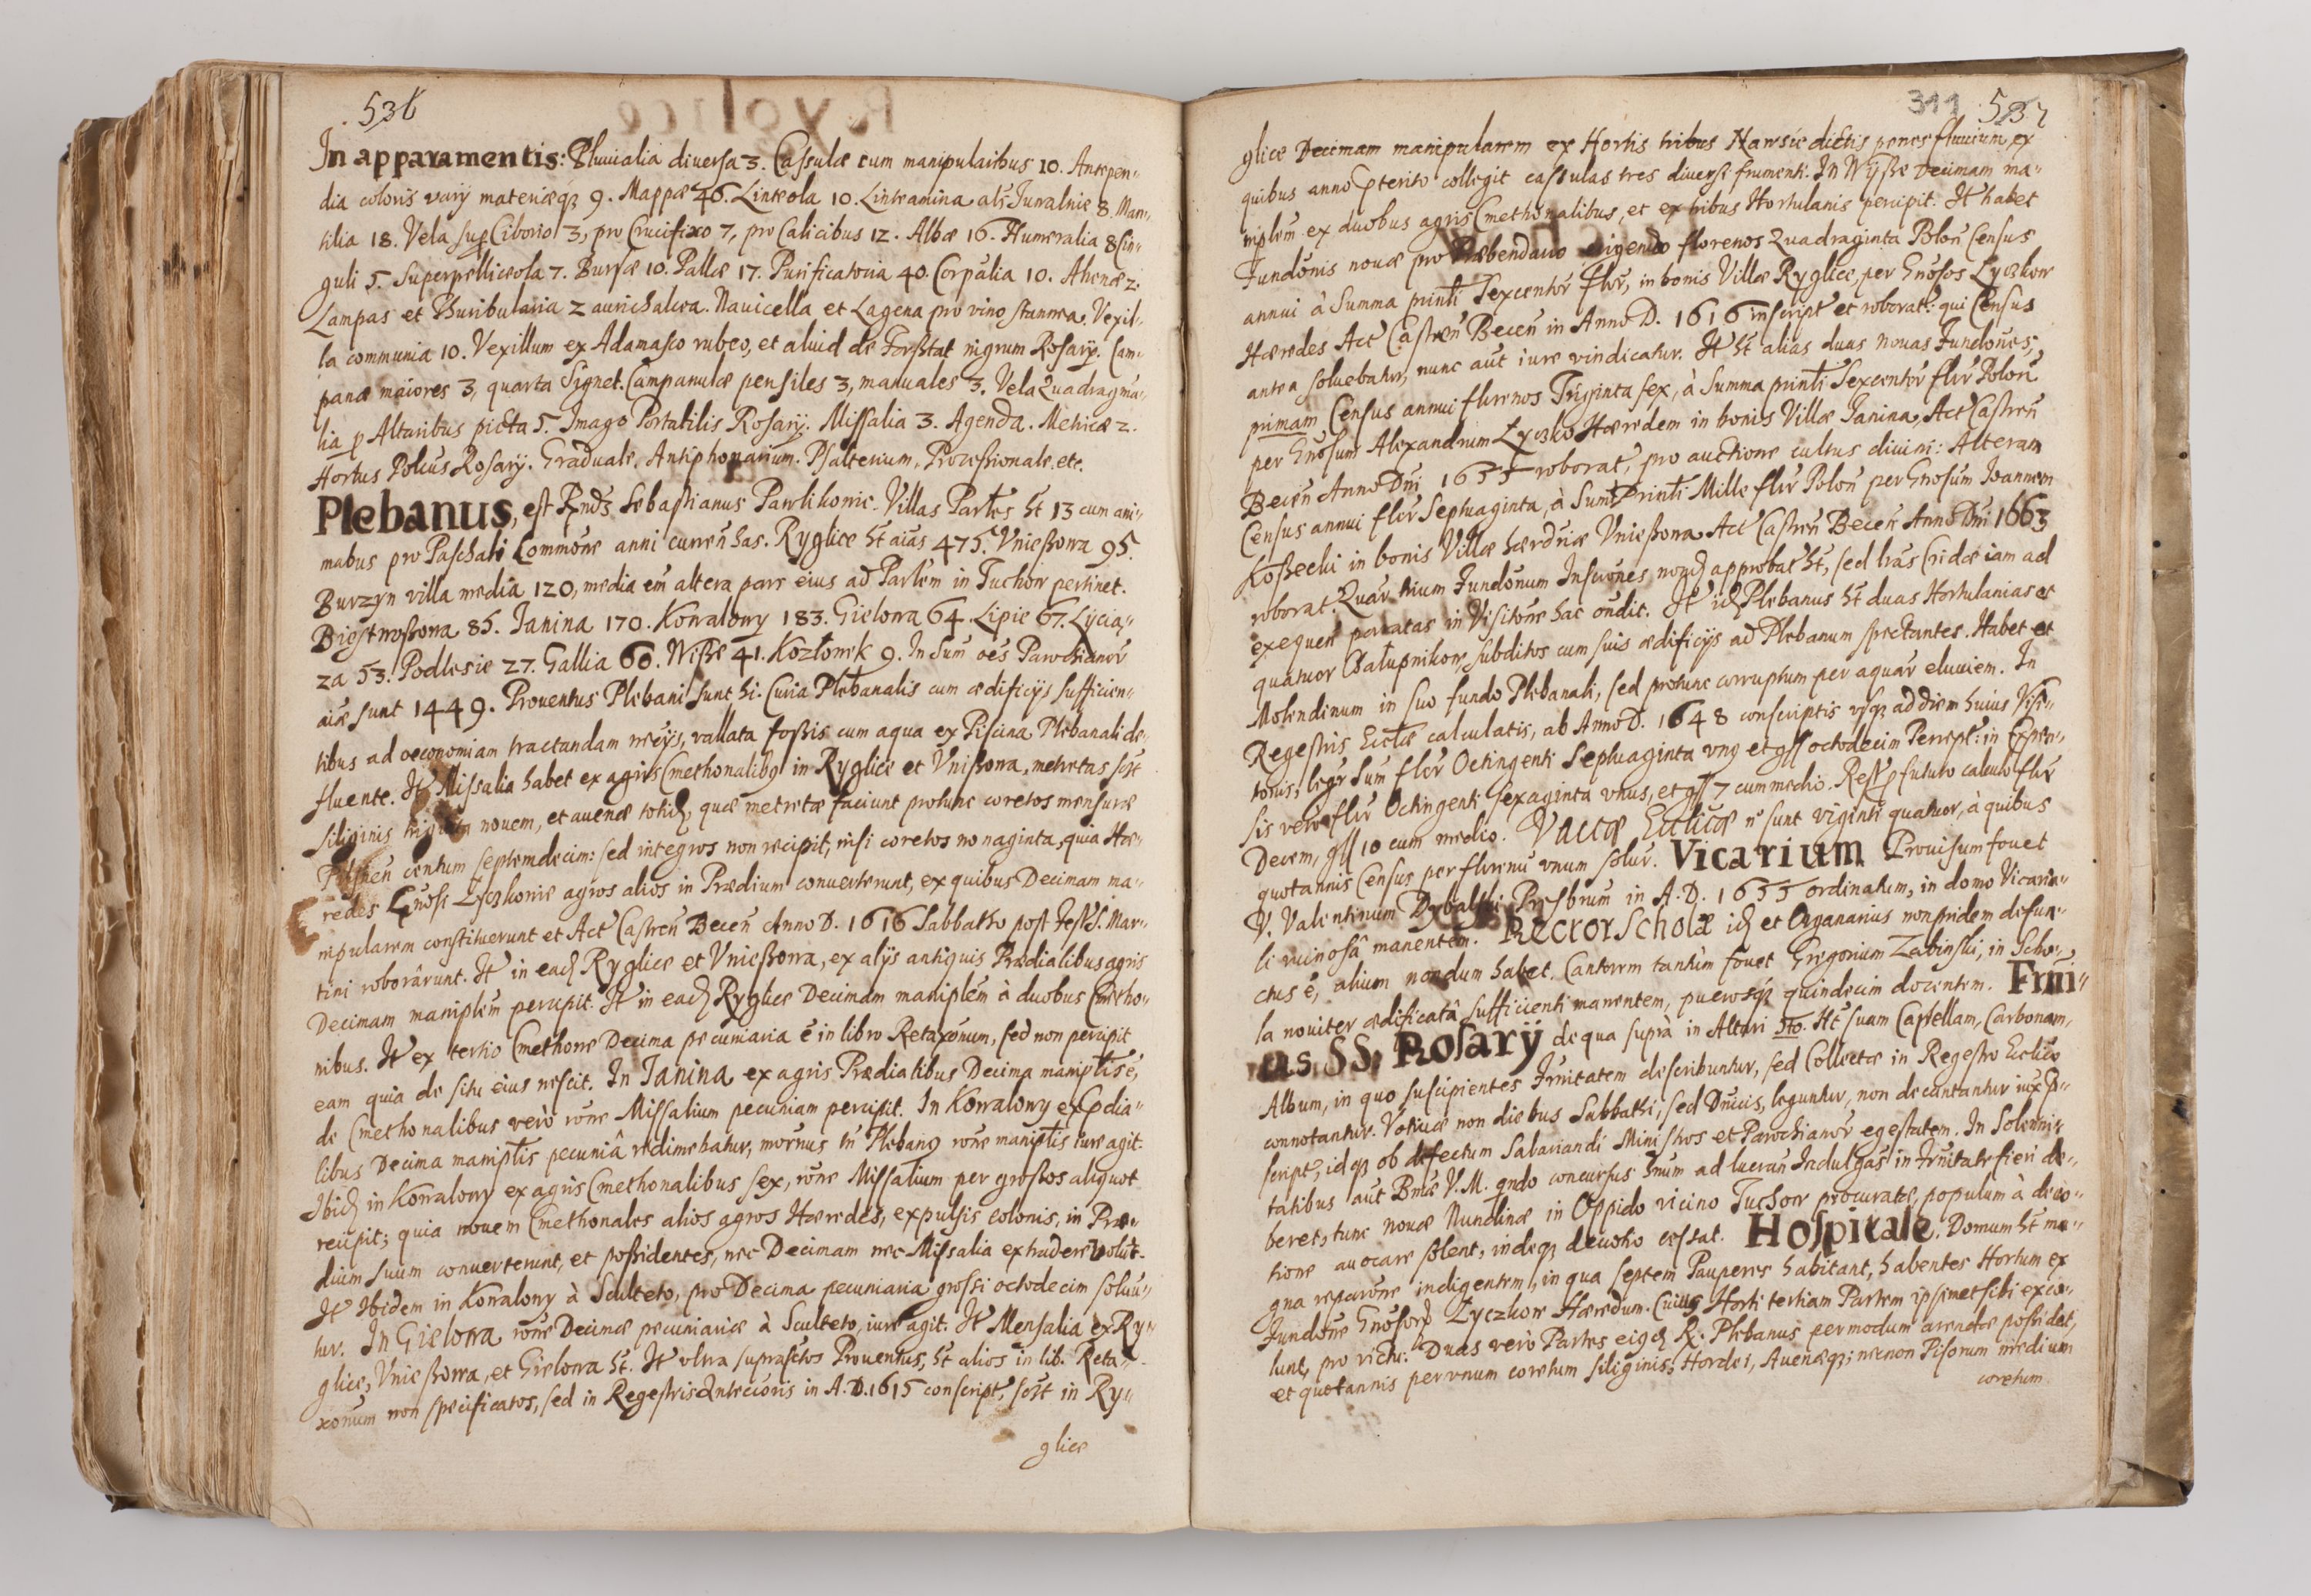 536
In apparamentis: Pluuialia diuersa 3. Casulæ cum manipularibus 10. Antepen-
dia coloris varij materiæq; 9. Mappæ 46. Linteola 10. Lintramina als Tuwalnie 8. Man-
tilia 18. Vela sup Ciborio 3, pro Crucifixo 7, pro Calicibus 12. Albæ 16. Humeralia 8 Cin-
guli 5. Superpelliceola 7. Bursæ 10. Pallæ 17. Purificatoria 40. Corpalia 10. Ahenæ 2.
Lampas et Thuribularia 2 aurichalcea. Nauicella et Lagena pro vino stannea. Vexil-
la communia 10. Vexillum ex Adamasco rubeo, et aliud de Forsztat nigrum Rosarij. Cam-
panæ maiores 3, quarta Signet. Campanulæ pensiles 3, manuales 3. Vela Quadragma-
lia p Altaribus picta 5. Imago Portatilis Rosarij. Missalia 3. Agenda. Metricæ 2.
Hortus Polcus Rosarij. Graduale. Antiphonarium. Psalterium. Processionale. etc.
Plebanus, est Rnds Sebastianus Pawlikowic. Villas Partes ht 13 cum ani-
mabus pro Paschali Commone anni curren has. Ryglice ht aias 475. Vnießowa 95.
Burzyn villa media 120, media em altera pars eius ad Partem in Tuchow pertinet.
Biestrzoßowa 85. Janina 170. Kowalowy 183. Gielowa 64. Lipie 67. Lycia-
za 53. Podlesie 27. Gallia 60. Wißße 41. Kozłowek 9. In Sum oes Parochianor
aiæ sunt 1449. Prouentus Plebani sunt hi. Curia Plebanalis cum ædificijs sufficien-
tibus ad œconomiam tractandam necijs, vallata foßis cum aqua ex Piscina Plebanali de-
fluente. It Missalia habet ex agris Cmethonalibus in Ryglice et Vnißowa, metretas sclt
siliginis triginta nouem, et auenæ totid, quæ metretæ faciunt protunc coretos mensuræ
Pilsnen centum septemdecim: sed integros non recipit, nisi coretos nonaginta, quia Hæ-
redes Gnosi Lyczkowie agros alios in Prædium conuerterunt, ex quibus Decimam ma-
nipularem constituerunt et Act Castren Becen Anno D. 1616 Sabbatho post Fest S. Mar-
tini roborârunt. It in ead Ryglice et Vnießowa, ex alijs antiquis Prædialibus agris
Decimam maniplem percipit. It in ead Ryglice Decimam maniplem à duobus Cmetho-
nibus. It ex tertio Cmethone Decima pecuniaria e in libro Retaxonum, sed non percipit
eam quia de situ eius nescit. In Janina ex agris Prædialibus Decima maniplis e,
de Cmethonalibus verò rone Missalium pecuniam percipit. In Kowalowy ex Pdia-
libus Decima maniplis pecuniâ redimebatur, mornus tn Plebanus rone maniplis iure agit.
Ibid in Kowalowy ex agris Cmethonalibus sex, rone Missalium per grossos aliquot
recipit; quia nouem Cmethonales alios agros Hæredes, expulsis colonis, in Præ-
dium suum conuerterunt, et poßidentes, nec Decimam nec Missalia extradere volut.
It Ibidem in Kowalowy à Sculteto, pro Decima pecuniaria grossi octodecim soluu-
tur. In Gielowa rone Decimæ pecuniariæ à Sculteto, iure agit. It Mensalia ex Ry-
glice, Vnießowa, et Gielowa ht. It vltra suprasctos Prouentus, ht alios in lib. Reta-
xonum non specificatos, sed in Regestris Antecioris in A. D. 1615 conscript, sclt in Ry-
glice
311 537
glice Decimam manipularem ex Hortis tribus Nawsie dictis penes fluuium, ex
quibus anno Pterito collegit casulas tres diuersi frumenti. In Wyßße Decimam ma-
niplem ex duobus agris Cmethonalibus, et ex tribus Hortulanis percipit. It habet
Fundonis nouæ pro Præbendario erigendo florenos Quadraginta Polon Census
annui à Summa printi Sexcentor flor, in bonis Villæ Ryglice, per Gnosos Lyczkow
Hæredes Act Castren Becen in Anno D. 1616 inscript et roborat: qui Census
antea soluebatur, nunc aut iure vindicatur. It ht alias duas nouas Fundones;
primam Census annui florenos Triginta sex, à Summa printi Sexcentor flor Polon
per Gnosum Alexandrum Lyczko Hæredem in bonis Villæ Janina, Act Castren
Becen Anno Dni 1655 roborat, pro auctione cultus diuini: Alteram
Census annui flor Septuaginta, à Sum Printi Mille flor Polon per Gnosum Joannem
Koßecki in bonis Villæ hærdriæ Vnießowa Act Castren Becen Anno Dni 1663
roborat. Quar trium Fundonum Inscrones nond approbat ht, sed lras Cridæ iam ad
exequen paratas in Visitone hac ondit. It id Plebanus ht duas Hortulanias et
quatuor Chałupnikow subditos cum suis ædificijs ad Plebanum spectantes. Habet et
Molendinum in suo fundo Plebanali, sed protunc corruptum per aquar eluuiem. In
Regestris Ecclæ calculatis, ab Anno D. 1648 conscriptis vsq; ad diem huius Visi-
tonis, legr Sum flor Octingenti Septuaginta vnus et gss octodecim Percept: in Expen-
sis vero flor Octingenti sexaginta vnus, et gss 7 cum medio. Rest p futuro calculo flor
Decem, gss 10 cum medio. Vaccæ Eccliæ no sunt viginti quatuor, à quibus
quotannis Census per florenu vnum solur. Vicarium Prouisum fouet
V. Valentinum Dybalski Presbrum in A. D. 1655 ordinatum, in domo Vicaria-
li ruinosâ manentem. Rector Scholæ id et Organarius nonpridem defun-
ctus e, alium nondum habet. Cantorem tantùm fouet Gregorium Zabinski, in Scho-
la nouiter ædificatâ sufficienti manentem, puerosq; quindecim docentem. Frni-
tas SS. Rosarij de qua suprà in Altari 5to. Ht suam Capsellam, Carbonam,
Album, in quo suscipientes Frnitatem describuntur, sed Collectæ in Regestro Eccliæ
connotantur. Votiuæ non diebus Sabbathi, sed Dnicis, leguntur, non decantantur iux P-
script, idq; ob defectum Salariandi Ministros et Parochianor egestatem. In Solennir
tatibus aut Bmæ V. M. qndo concursus Inum ad lucran Indulgas in Frnitate fieri de-
beret, tunc nouæ Nundinæ in Oppido vicino Tuchow procuratæ, populum à deuo-
tione auocare solent, indeq; deuotio cessat. Hospitale. Domum ht ma-
gna reparone indigentem, in qua septem Pauperes habitant, habentes Hortum ex
Fundone Gnosor Lyczkow Hæredum. Cuius Horti tertiam Partem ipsimet sibi exco-
lunt, pro victu: Duas verò Partes eigd R. Plebanus per modum arendæ possidet,
et quotannis per vnum coretum siliginis, Hordei, Auenæq; necnon Pisorum medium
coretum